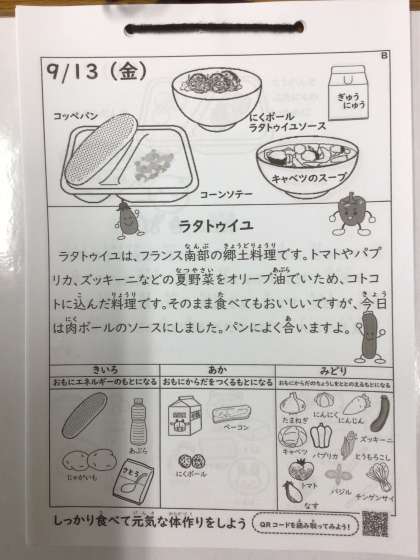 9/13（金）
B
コッペパン
にくボール
ラタトゥイユソース
ぎゅう
にゅう
キャベツのスープ
コーンソテー
ラタトゥイユ
ラタトゥイユは、フランス南部の郷土料理です。トマトやパプ
リカ、ズッキーニなどの夏野菜をオリーブ油でいため、コトコ
トに込んだ料理です。そのまま食べてもおいしいですが、今日
は肉ボールのソースにしました。パンによく合いますよ。
きいろ
おもにエネルギーのもとになる
あぶら
じゃがいも
さとう
あか
おもにからだをつくるもとになる
ベーコン
にくボール
みどり
おもにからだのちょうしをととのえるもとになる
たまねぎ
にんにく
にんじん
ズッキーニ
キャベツ
パプリカ
とうもろこし
トマト
バジル
チンゲンサイ
なす
しっかり食べて元気な体作りをしよう
QRコードを読み取ってみよう！